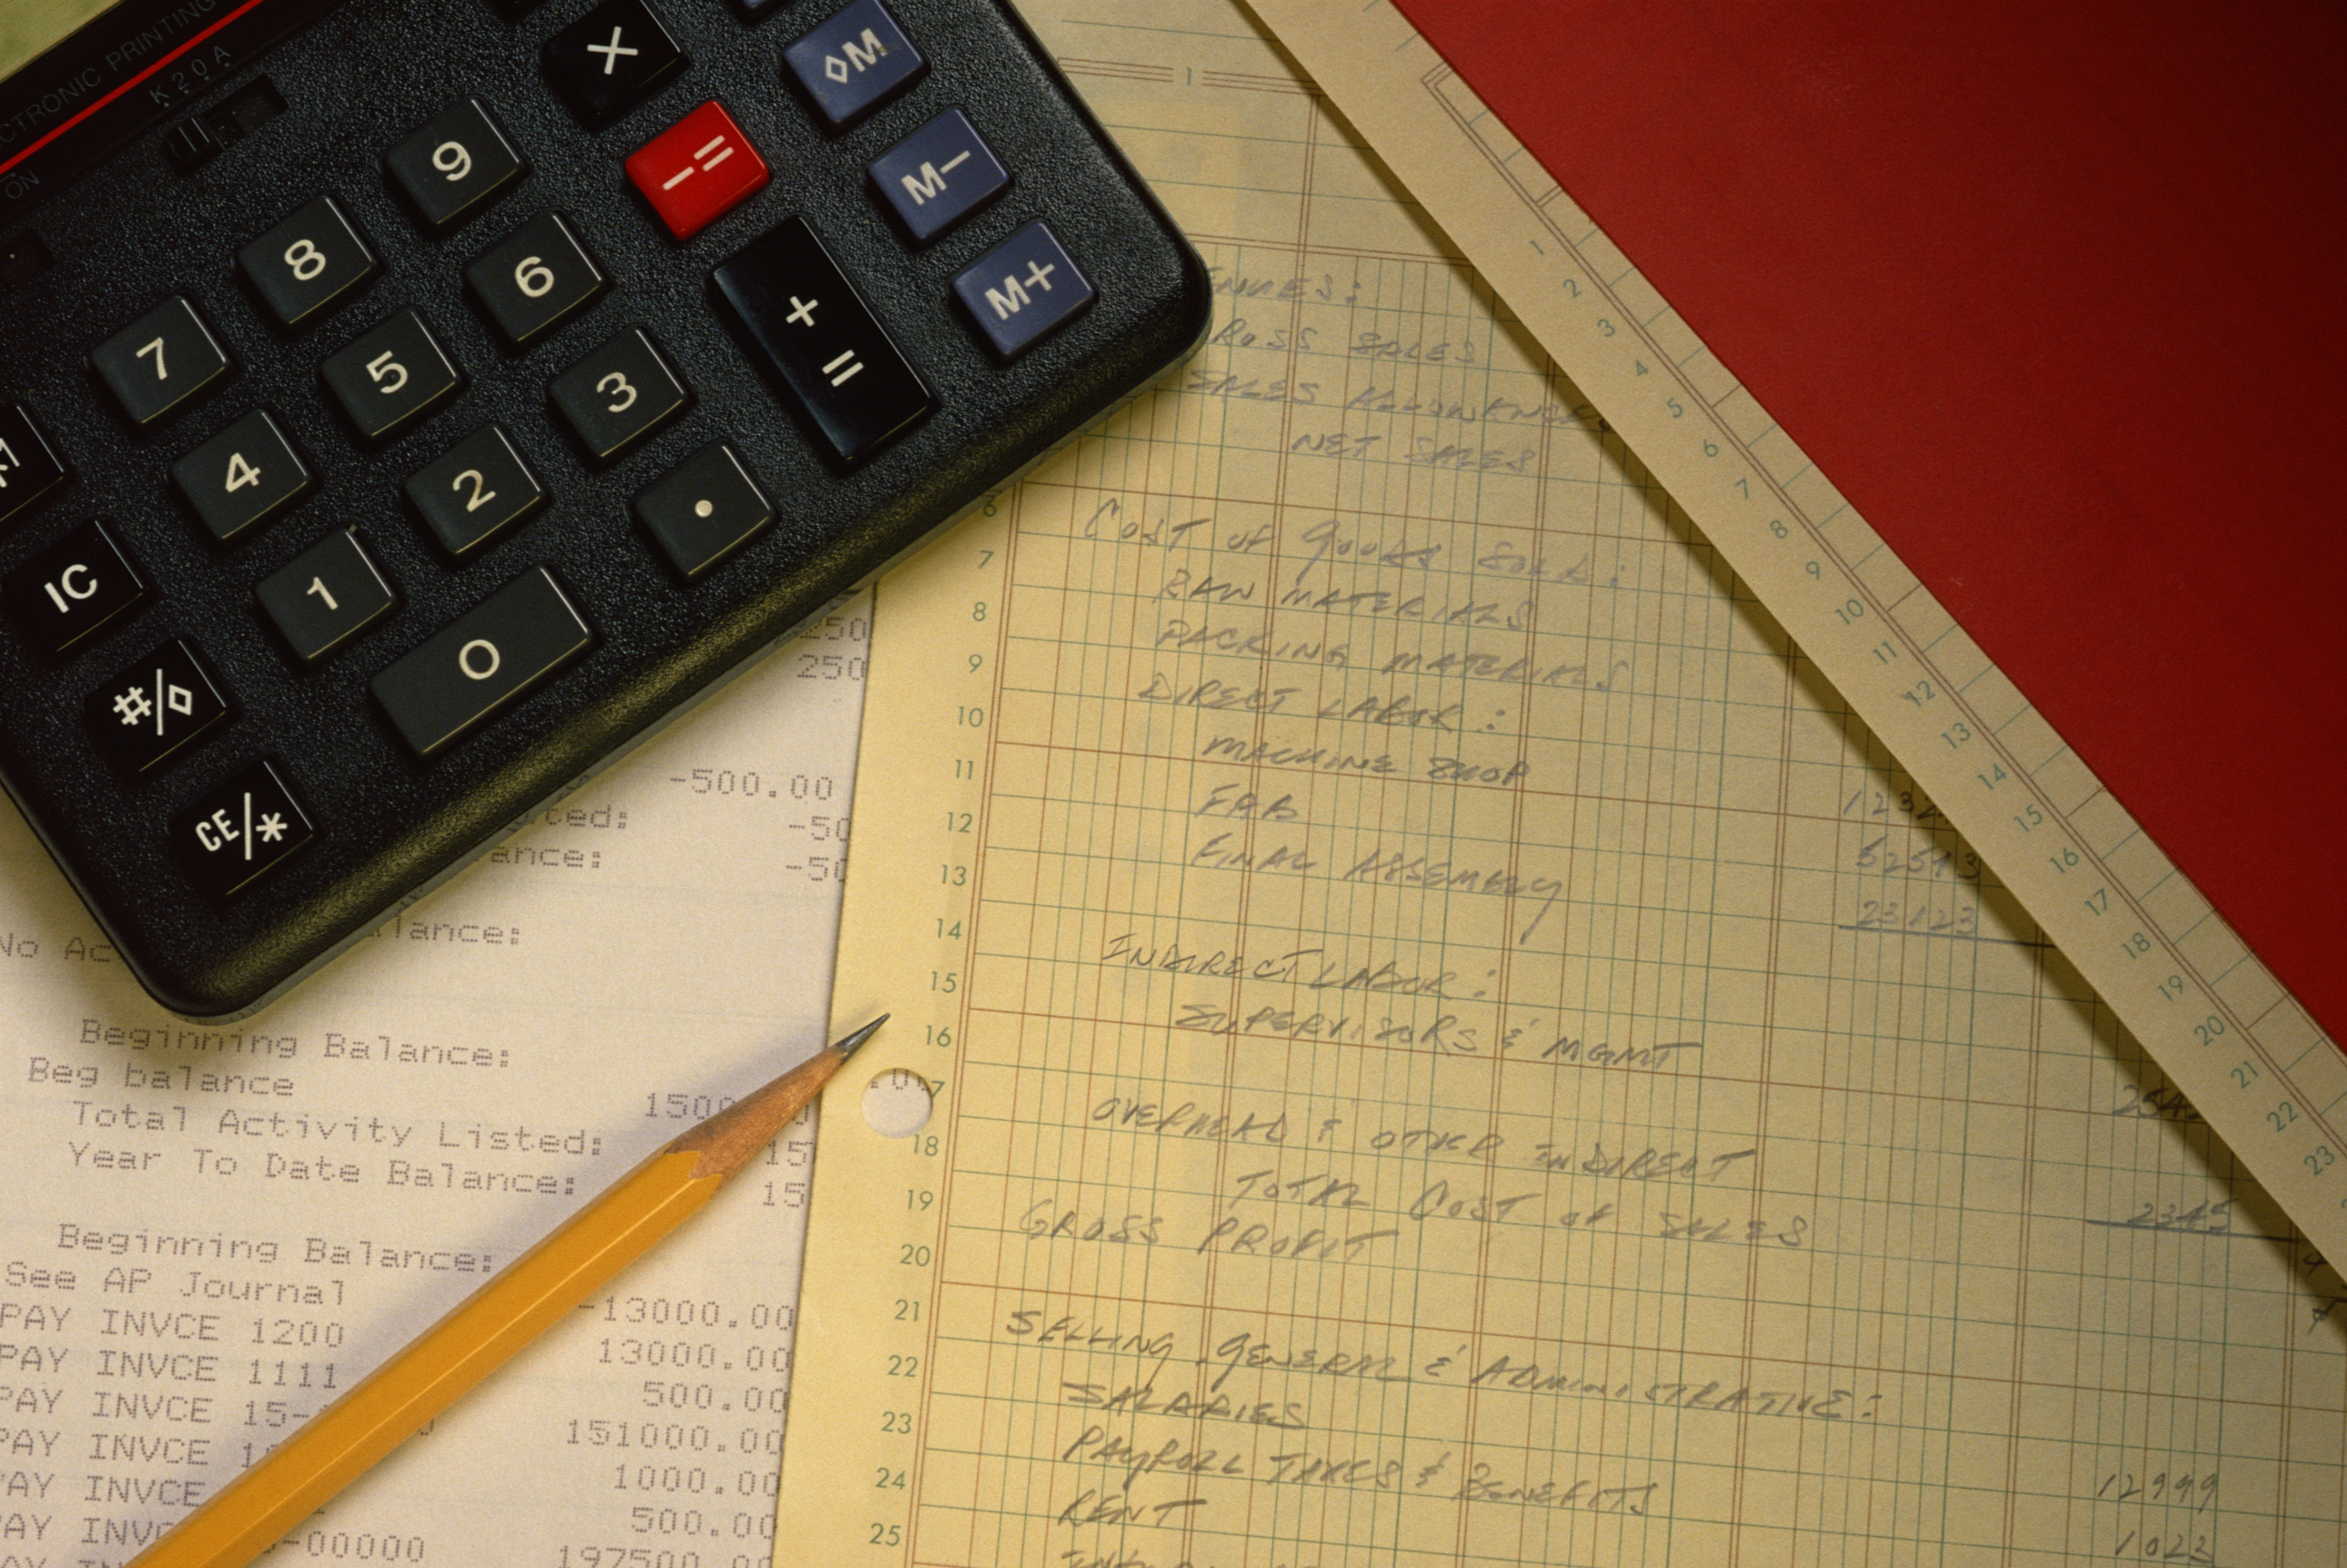 CTRONIC PRINTING
K 2 0 A
ON
×
◊M
9
-=
M-
8
6
+
=
M+
7
5
3
4
2
.
IC
1
0
#/◊
CE/*
250
250
-500.00
ted:
-50
ance:
-50
alance:
No Ac
Beginning Balance:
Beg balance
1500
Total Activity Listed:
15
Year To Date Balance:
15
Beginning Balance:
See AP Journal
-13000.00
PAY INVCE 1200
13000.00
PAY INVCE 1111
500.00
PAY INVCE 15-
151000.00
PAY INVCE
1000.00
PAY INVCE
500.00
PAY INV
-00000
197500.00
1
ENUES:
ROSS SALES
SALES ALLOWANCE
NET SALES
6
COST OF GOODS SOLD:
7
RAW MATERIALS
8
PACKING MATERIALS
9
DIRECT LABOR:
10
MACHINE SHOP
11
FAB
1232
12
FINAL ASSEMBLY
62513
13
23123
14
INDIRECT LABOR:
15
SUPERVISORS & MGMT
16
254
7
OVERHEAD & OTHER INDIRECT
18
TOTAL COST OF SALES
2345
19
GROSS PROFIT
20
21
SELLING, GENERAL & ADMINISTRATIVE:
22
SALARIES
23
PAYROLL TAXES & BENEFITS
12999
24
RENT
1022
25
1
2
3
4
5
6
7
8
9
10
11
12
13
14
15
16
17
18
19
20
21
22
23